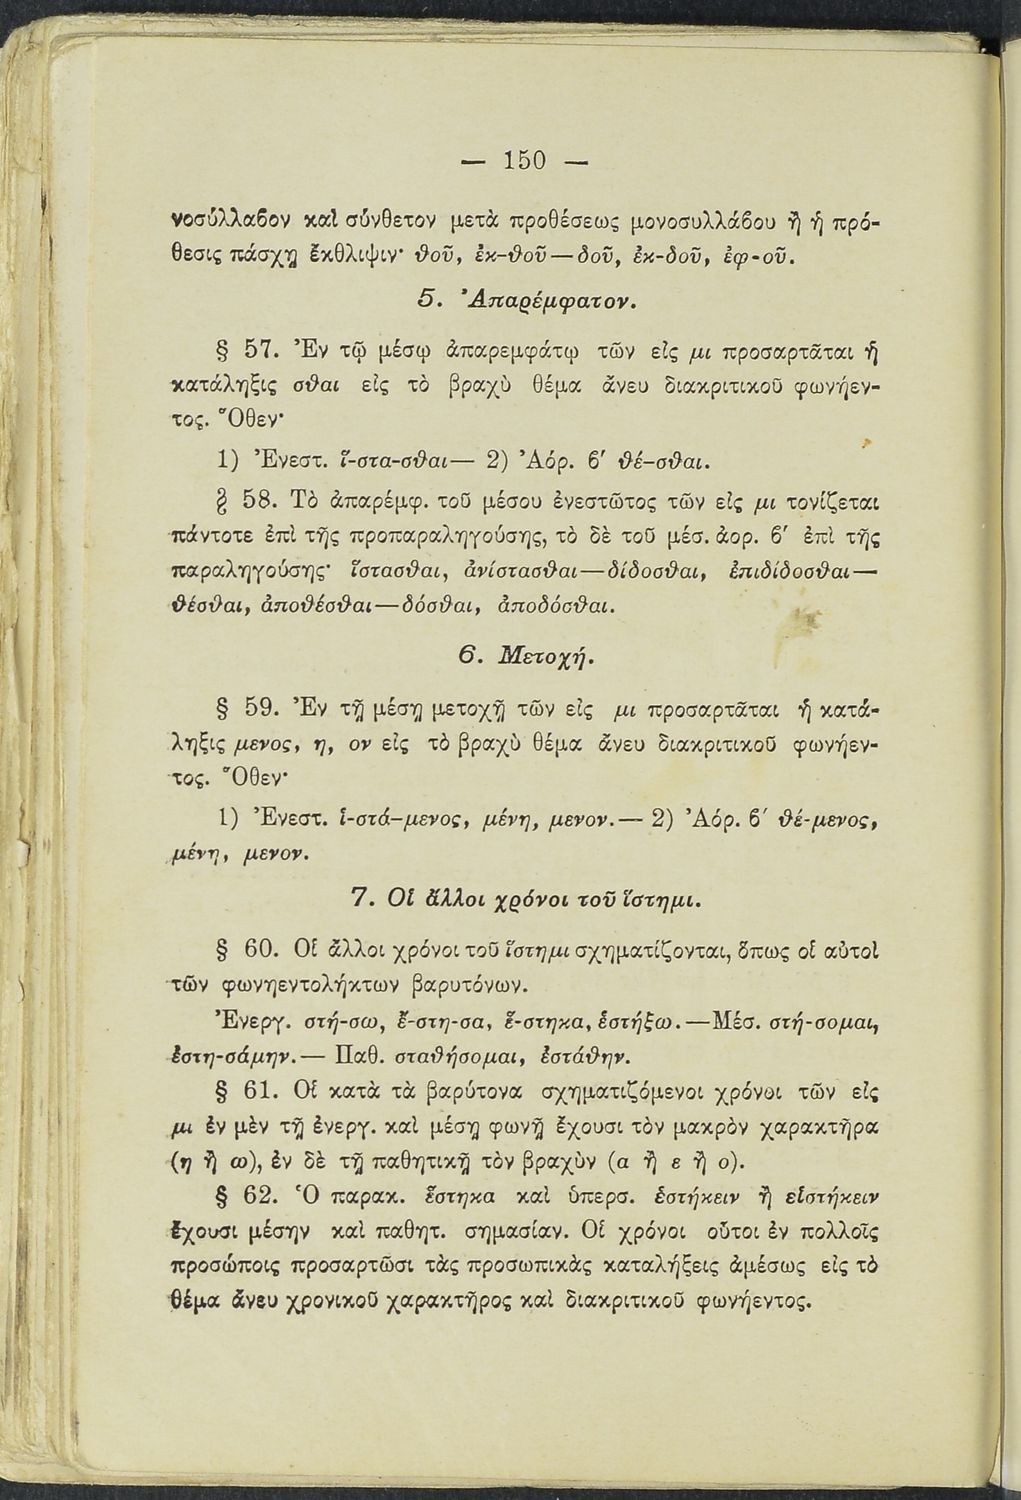 — 150 —
νοσύλλαβον καὶ σύνθετον μετὰ προθέσεως μονοσυλλάβου ἢ ἡ πρό-
θεσις πάσχῃ ἔκθλιψιν· θοῦ, ἐκ-θοῦ — δοῦ, ἐκ-δοῦ, ἐφ-οῦ.
5. Ἀπαρέμφατον.
§ 57. Ἐν τῷ μέσῳ ἀπαρεμφάτῳ τῶν εἰς μι προσαρτᾶται ἡ
κατάληξις σθαι εἰς τὸ βραχὺ θέμα ἄνευ διακριτικοῦ φωνήεν-
τος. Ὅθεν·
1) Ἐνεστ. ἵ-στα-σθαι— 2) Ἀόρ. β′ θέ-σθαι.
§ 58. Τὸ ἀπαρέμφ. τοῦ μέσου ἐνεστῶτος τῶν εἰς μι τονίζεται
πάντοτε ἐπὶ τῆς προπαραληγούσης, τὸ δὲ τοῦ μέσ. ἀορ. β′ ἐπὶ τῆς
παραληγούσης· ἵστασθαι, ἀνίστασθαι—δίδοσθαι, ἐπιδίδοσθαι—
θέσθαι, ἀποθέσθαι—δόσθαι, ἀποδόσθαι.
6. Μετοχή.
§ 59. Ἐν τῇ μέσῃ μετοχῇ τῶν εἰς μι προσαρτᾶται ἡ κατά-
ληξις μενος, η, ον εἰς τὸ βραχὺ θέμα ἄνευ διακριτικοῦ φωνήεν-
τος. Ὅθεν·
1) Ἐνεστ. ἱ-στά-μενος, μένη, μενον.— 2) Ἀόρ. β′ θέ-μενος,
μένη, μενον.
7. Οἱ ἄλλοι χρόνοι τοῦ ἵστημι.
§ 60. Οἱ ἄλλοι χρόνοι τοῦ ἵστημι σχηματίζονται, ὅπως οἱ αὐτοὶ
τῶν φωνηεντολήκτων βαρυτόνων.
Ἐνεργ. στή-σω, ἔ-στη-σα, ἕ-στηκα, ἑστήξω.—Μέσ. στή-σομαι,
ἐστη-σάμην.— Παθ. σταθήσομαι, ἐστάθην.
§ 61. Οἱ κατὰ τὰ βαρύτονα σχηματιζόμενοι χρόνοι τῶν εἰς
μι ἐν μὲν τῇ ἐνεργ. καὶ μέσῃ φωνῇ ἔχουσι τὸν μακρὸν χαρακτῆρα
(η ἢ ω), ἐν δὲ τῇ παθητικῇ τὸν βραχὺν (α ἢ ε ἢ ο).
§ 62. Ὁ παρακ. ἕστηκα καὶ ὑπερσ. ἑστήκειν ἢ εἱστήκειν
ἔχουσι μέσην καὶ παθητ. σημασίαν. Οἱ χρόνοι οὗτοι ἐν πολλοῖς
προσώποις προσαρτῶσι τὰς προσωπικὰς καταλήξεις ἀμέσως εἰς τὸ
θέμα ἄνευ χρονικοῦ χαρακτῆρος καὶ διακριτικοῦ φωνήεντος.